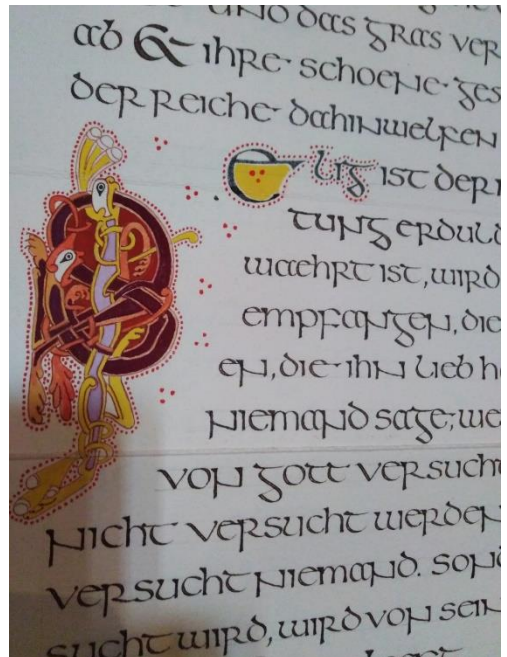 und das gras ver
ab & ihre schoene ges
der reiche dahinwelken
Selig ist der
tung erduld
waehrt ist, wird
empfangen, die
en, die ihn lieb h
niemand sage; we
von gott versucht
nicht versucht werden
versucht niemand. sond
sucht wird, wird von sein